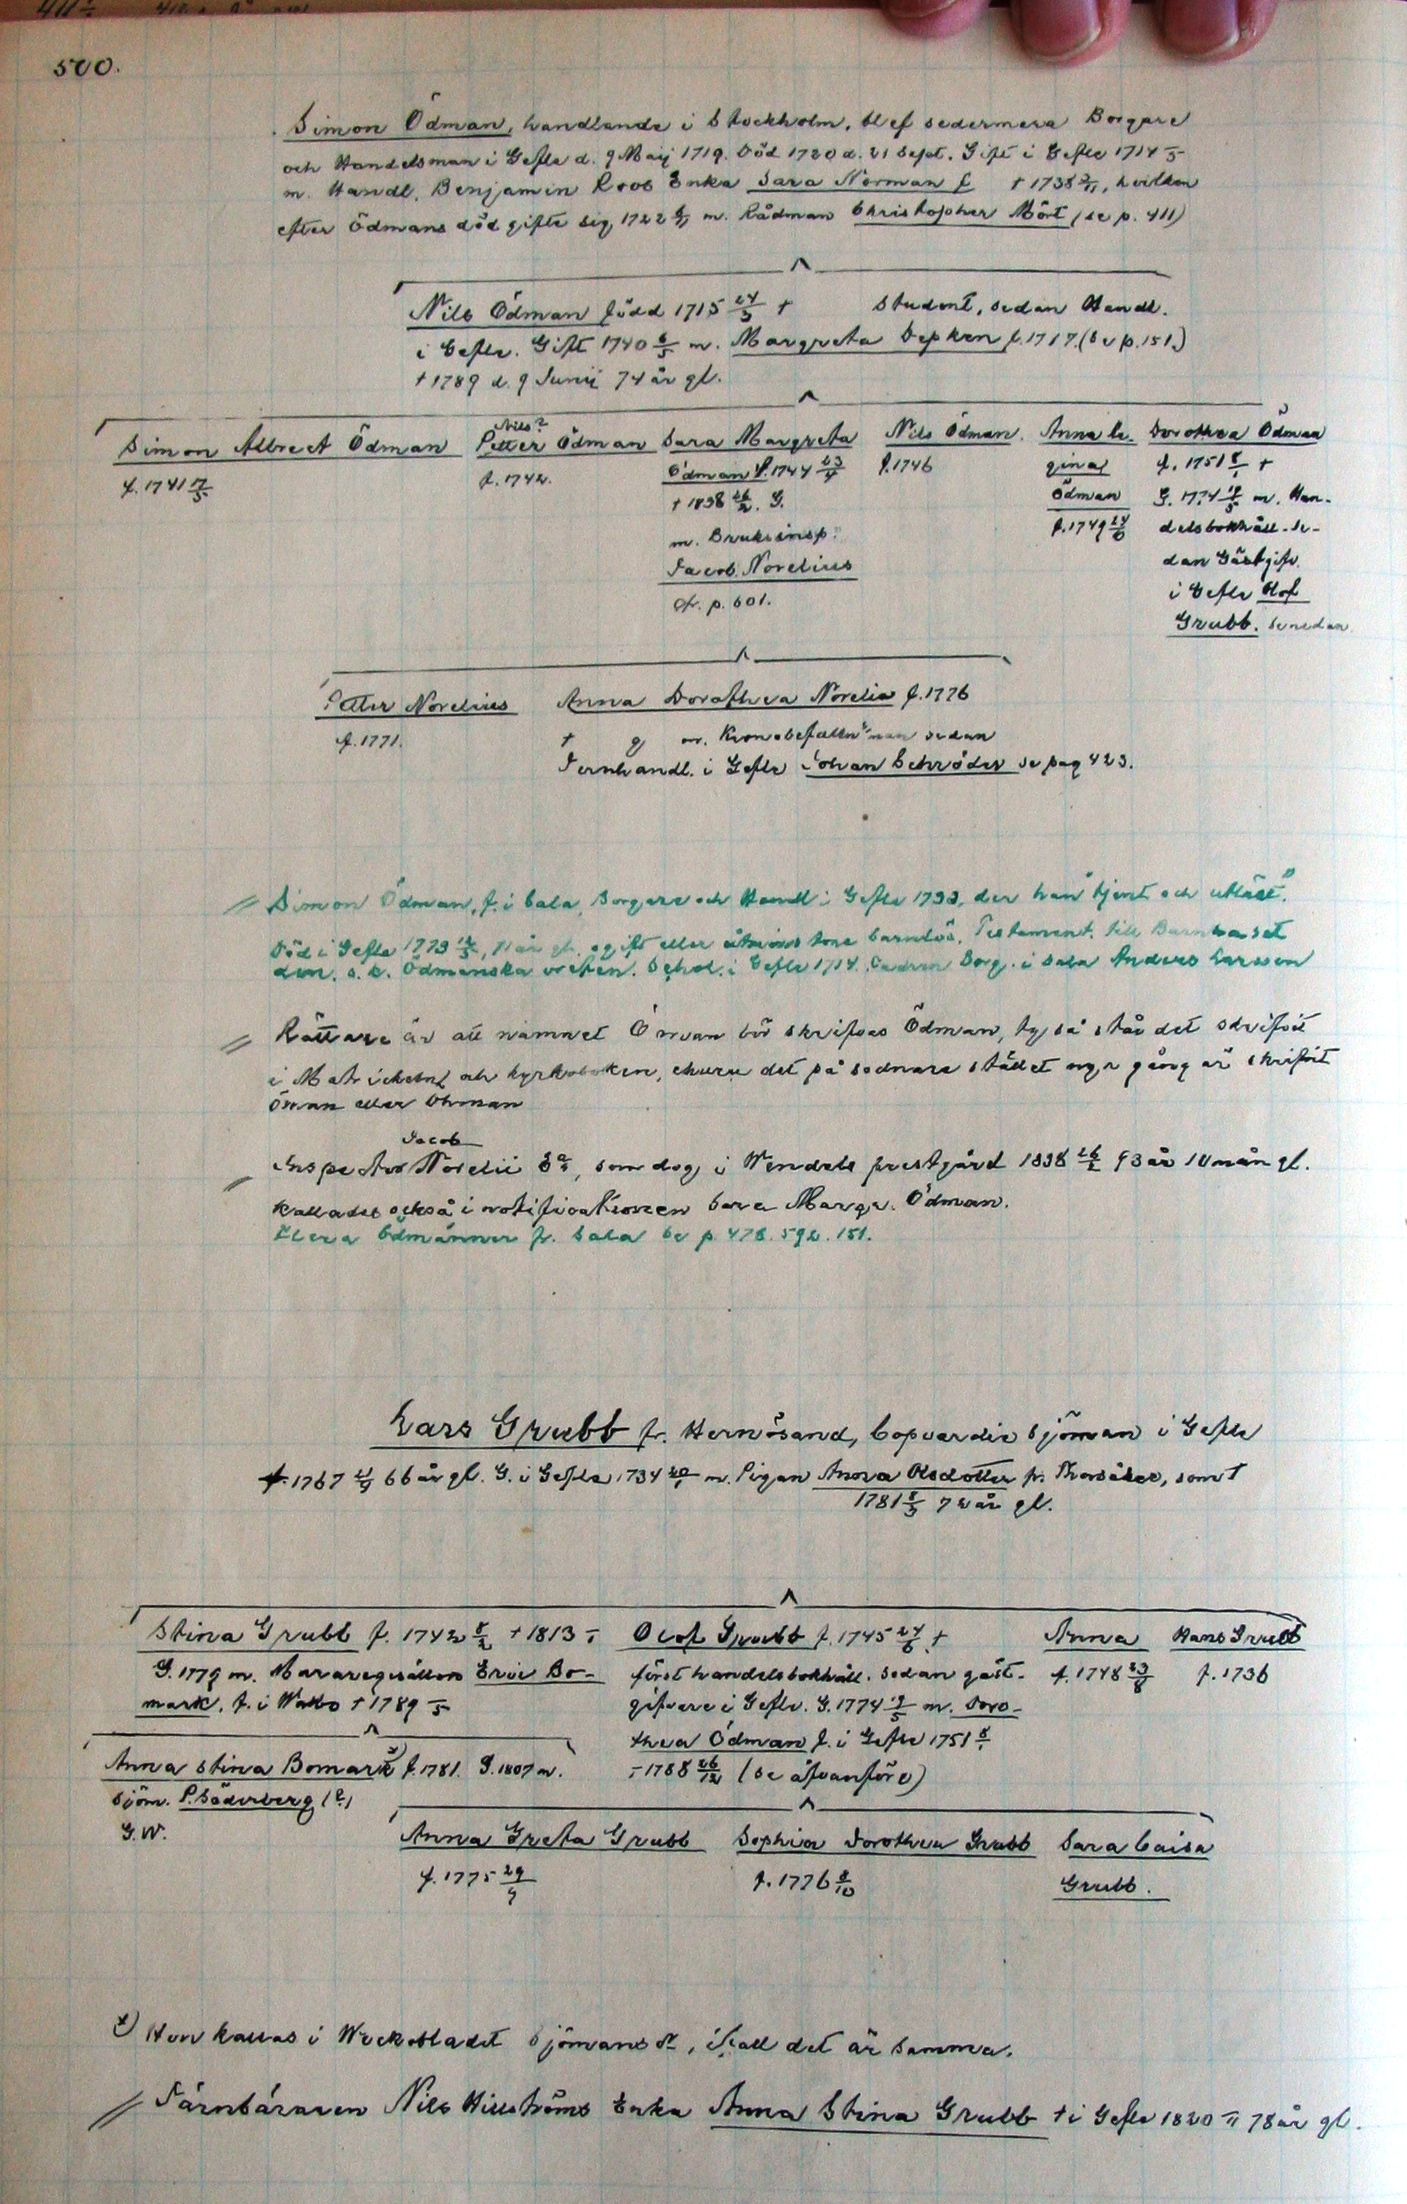 500.
Simon Ödman, handlande i Stockholm, blef sedermera Borgare
och Handelsman i Gefle d. 9 Maij 1719. Död 1720 d. 21 Sept. Gift i Gefle 1714 5
m. Handl. Benjamin Roos Enka Sara Norman f † 1738, hvilken
efter Ödmans död gifte sig 1722 m. Rådman Christopher Mört (se p. 411)
Nils Ödman född 1715 24/3 † Student, sedan Handl.
i Gefle. Gift 1740 6/5 m. Margreta Depken f. 1717. (se p. 151.)
† 1789 d. 9 Junij 74 år gl.
Simon Albrect Ödman
f. 1741 17/5
Nils?
Petter Ödman
f. 1742.
Sara Margreta
Ödman f. 1744 23/4
† 1838 26/2. G.
m. Bruksinsp.
Jacob Norelius
cfr. p. 601.
Nils Ödman.
f. 1746
Anna Re-
gina
Ödman
f. 1749 24/6
Dorothea Ödman
f. 1751 8/1 †
G. 1774 19/5 m. Han-
delsbokhåll. se-
dan Gästgifv.
i Gefle Olof
Grubb. se nedan
Petter Norelius
f. 1771.
Anna Dorothea Norelia f. 1776
† g m. Kronobefalln.man sedan
Jernhandl. i Gefle Johan Schröder se pag 423.
// Simon Ödman, f. i Sala, Borgare och Handl i Gefle 1733, der han "tjent och utlärt".
Död i Gefle 1773, 71 år gl. ogift eller åtminstone barnlös. Testament. till Barnhuset
den s. k. Ödmanska vreten. Schol. i Gefle 1714. Borg. i Sala Anders Larsson
// Rättare är att namnet Öman bör skrifvas Ödman, ty så står det skrifvit
i Matrickeln och kyrkoboken, ehuru det på sednare stället någon gång är skrifvit
Öman eller Ohman
Jacob
// Inspector Norelii Ea, som dog i Wendels prestgård 1838 26/2 93 år 10 mån gl.
kallades också i notificationen Sara Margr. Ödman.
Flera Ödmänner fr. Sala se p. 478. 592. 151.
Lars Grubb fr. Hernösand, Copvardie Sjöman i Gefle
†. 1767 66 år gl. G. i Gefle 1734 m. Pigan Anna Olsdotter fr. Thorsåker, som †
1781 8/3 72 år gl.
Stina Grubb f. 1742 8/2 † 1813
G. 1779 m. Murareg:sällen Eric Bo-
mark. f. i Wakso † 1789
Olof Grubb f. 1745 24/6 †
först handelsbokhåll. sedan gäst-
gifvare i Gefle. G. 1774 19/5 m. Doro-
thea Ödman f. i Gefle 1751 8/1
† 1788 26/12 (se åfvanföre)
Anna
f. 1748 23/8
Hans Grubb
f. 1736
Anna Stina Bomark x) f. 1781. G. 1807 m.
Sjöm. P. Söderberg (?)
G. W.
Anna Greta Grubb
f. 1775 29/9
Sophia Dorothea Grubb
f. 1776 8/10
Sara Caisa
Grubb.
x) Hon kallas i Weckobladet Sjömansdr, ifall det är samma.
// Järnbäraren Nils Hillströms Enka Anna Stina Grubb † i Gefle 1820 78 år gl.